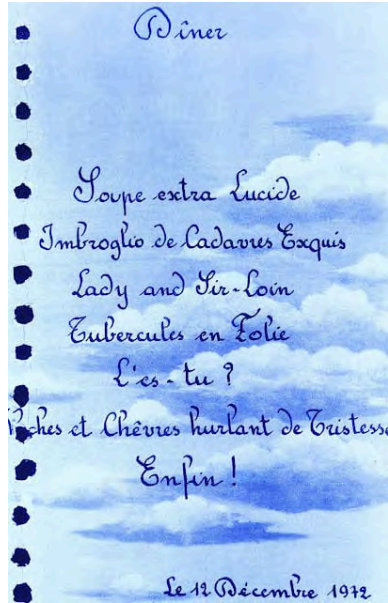 Dîner
Soupe extra Lucide
Imbroglio de Cadavres Exquis
Lady and Sir-Loin
Tubercules en Folie
L'es-tu ?
et Chêvres hurlant de Tristesse
Enfin !
Le 12 Décembre 1972